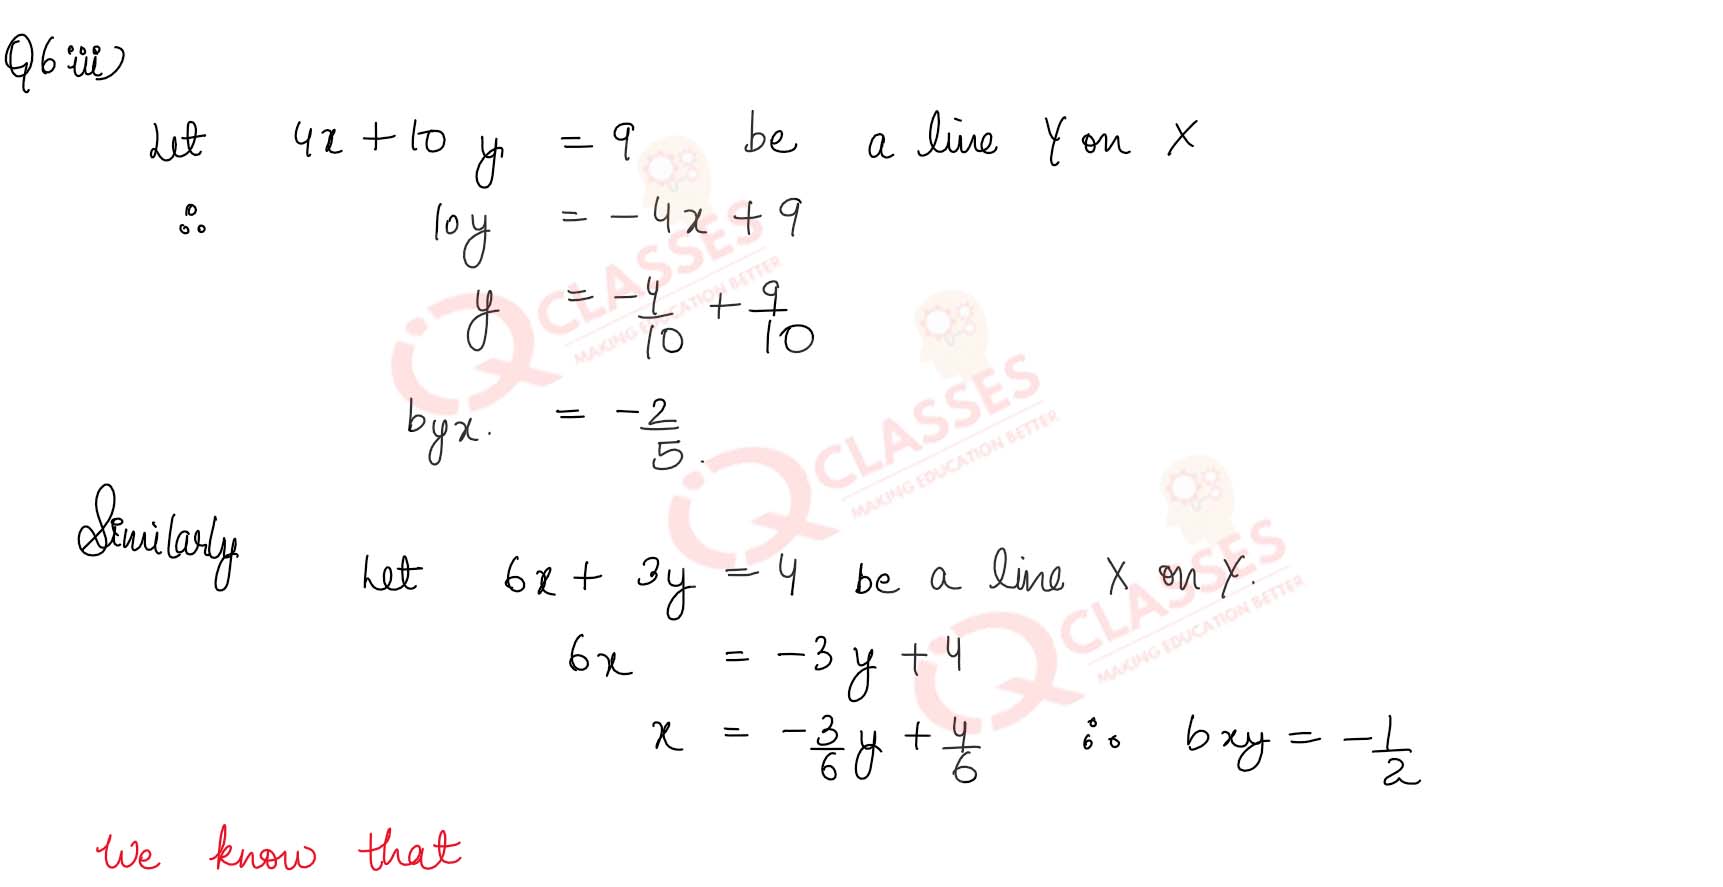 Q6 iii)
Let 4x + 10 y = 9 be a line Y on X
∴ 10y = -4x + 9
y = -4/10 + 9/10
byx. = -2/5.
Similarly Let 6x + 3y = 4 be a line X on Y.
6x = -3y + 4
x = -3/6 y + 4/6 ∴ bxy = -1/2
We know that
iQ CLASSES
MAKING EDUCATION BETTER
iQ CLASSES
MAKING EDUCATION BETTER
iQ CLASSES
MAKING EDUCATION BETTER